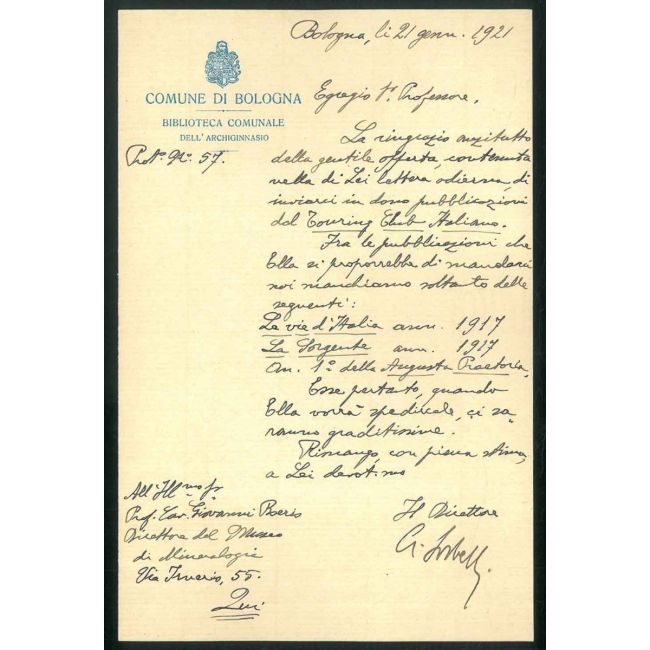 Bologna, li 21 genn. 1921
COMUNE DI BOLOGNA
BIBLIOTECA COMUNALE
DELL'ARCHIGINNASIO
Prot. No. 57.
Egregio Sr. Professore,
La ringrazio anzitutto
della gentile offerta, contenuta
nella di Lei lettera odierna, di
inviarci in dono pubblicazioni
del Touring Club Italiano.
Fra le pubblicazioni che
Ella si proporrebbe di mandarci
noi manchiamo soltanto delle
seguenti:
Le vie d'Italia ann. 1917
La Sorgente ann. 1917
An. 1º della Augusta Praetoria.
Esse pertanto, quando
Ella vorrà spedircele, ci sa
ranno graditissime.
Rimango, con piena stima,
a Lei devot.mo
Il Direttore
A. Sorbelli
All'Ill.mo Sr
Prof. Cav. Giovanni Boeris
Direttore del Museo
di Mineralogia
Via Irnerio, 55.
Qui